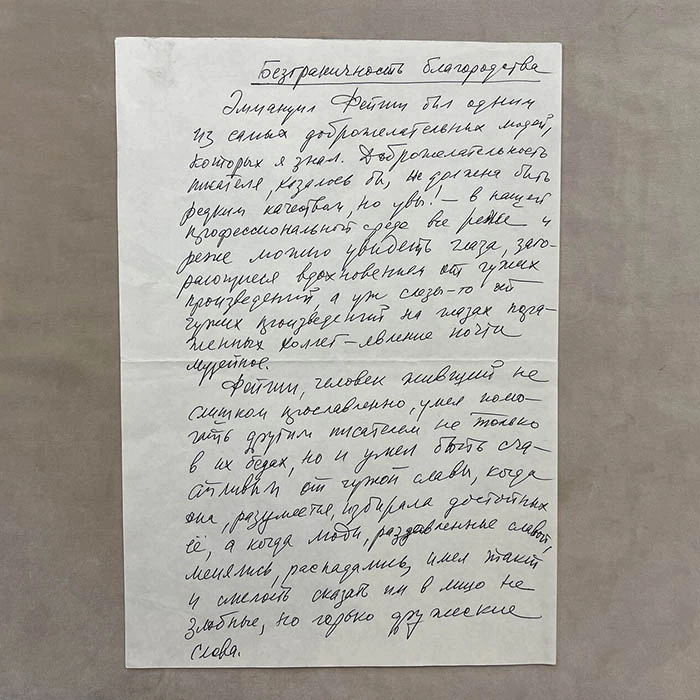 Безграничность благородства
Эммануил Фейгин был одним
из самых доброжелательных людей,
которых я знал. Доброжелательность
писателя, казалось бы, не должна быть
редким качеством, но увы! – в нашей
профессиональной среде все реже и
реже можно увидеть глаза, заго-
рающиеся вдохновением от чужих
произведений, а уж слезы-то от
чужих произведений на глазах пора-
женных коллег – явление почти
музейное.
Фейгин, человек живший не
слишком прославленно, умел помо-
гать другим писателем не только
в их бедах, но и умел быть сча-
стливым от чужой славы, когда
она, разумеется, избирала достойных
её, а когда люди, раздавленные славой,
менялись, распадались, имел такт
и смелость сказать им в лицо не
злобные, но горько дружеские
слова.